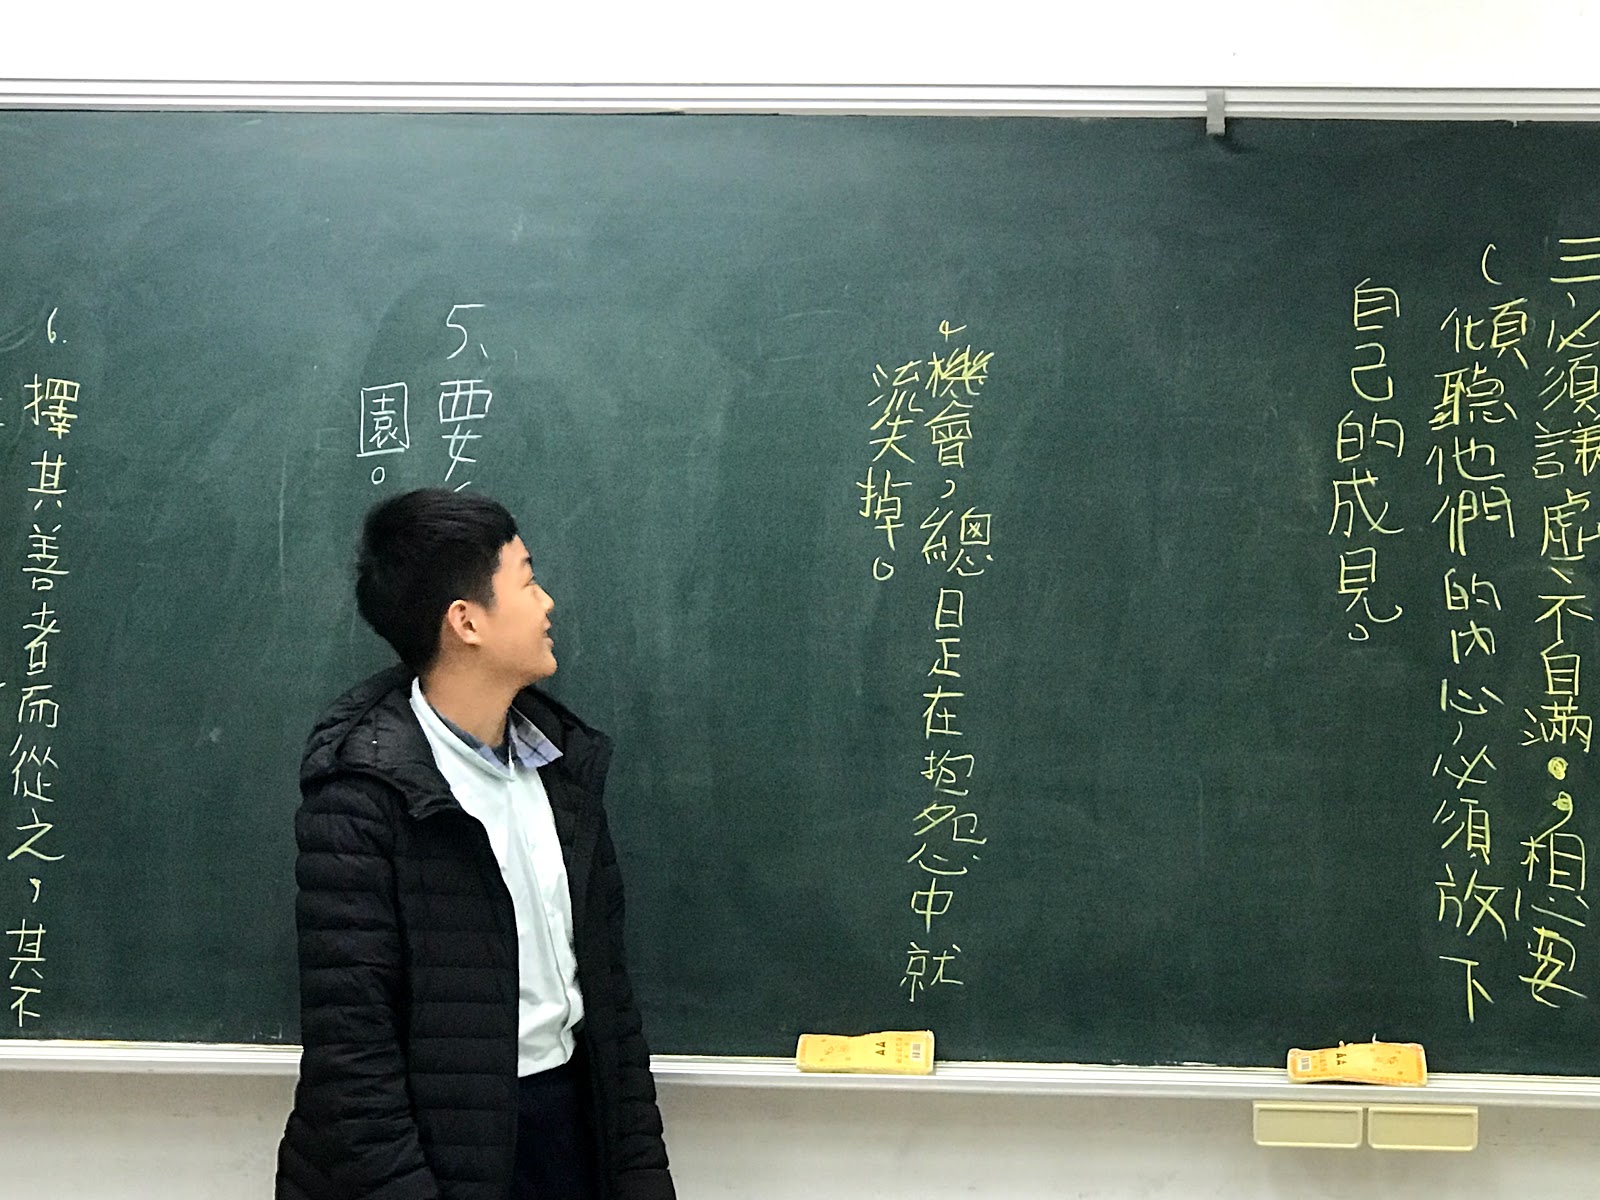 三、必須謙虛、不自滿,想要
傾聽他們的內心,必須放下
自己的成見。
4 機會,總日正在抱怨中就
流失掉。
5、要
園。
6. 擇其善者而從之,其不